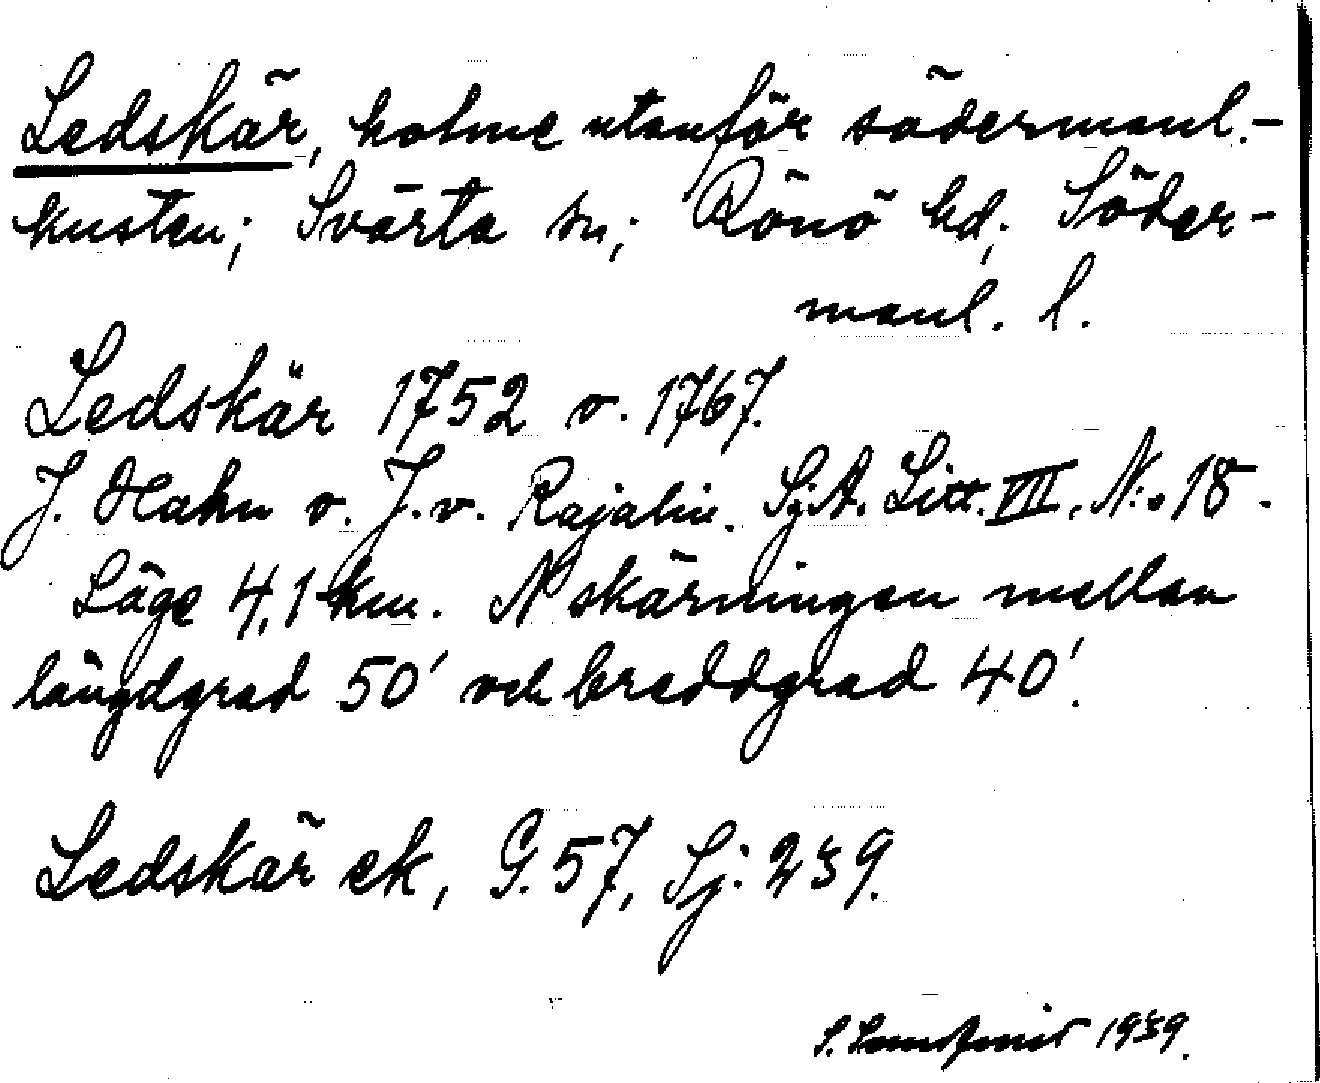 Ledskär, holme utanför södermanl.-
kusten; Svärta sn; Rönö hd; Söder-
manl. l.
Ledskär 1752 o. 1767.
J. Hahn o. J. v. Rajalin. Sj.A. Litt. VII, N:o 18.
Läge 4,1 km. N skärningen mellan
längdgrad 50' och breddgrad 40'.
Ledskär ek, G. 57, Sj: 239.
S. 1939.